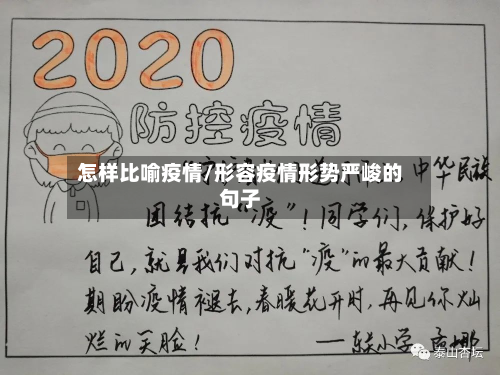 2020
防控疫情
怎样比喻疫情/形容疫情形势严峻的
句子
中华民族
团结抗“疫”！同学们，保护好
自己，就是我们对抗“疫”的最大贡献！
期盼疫情褪去，春暖花开时，再见你灿
烂的笑脸！
小学
泰山杏坛